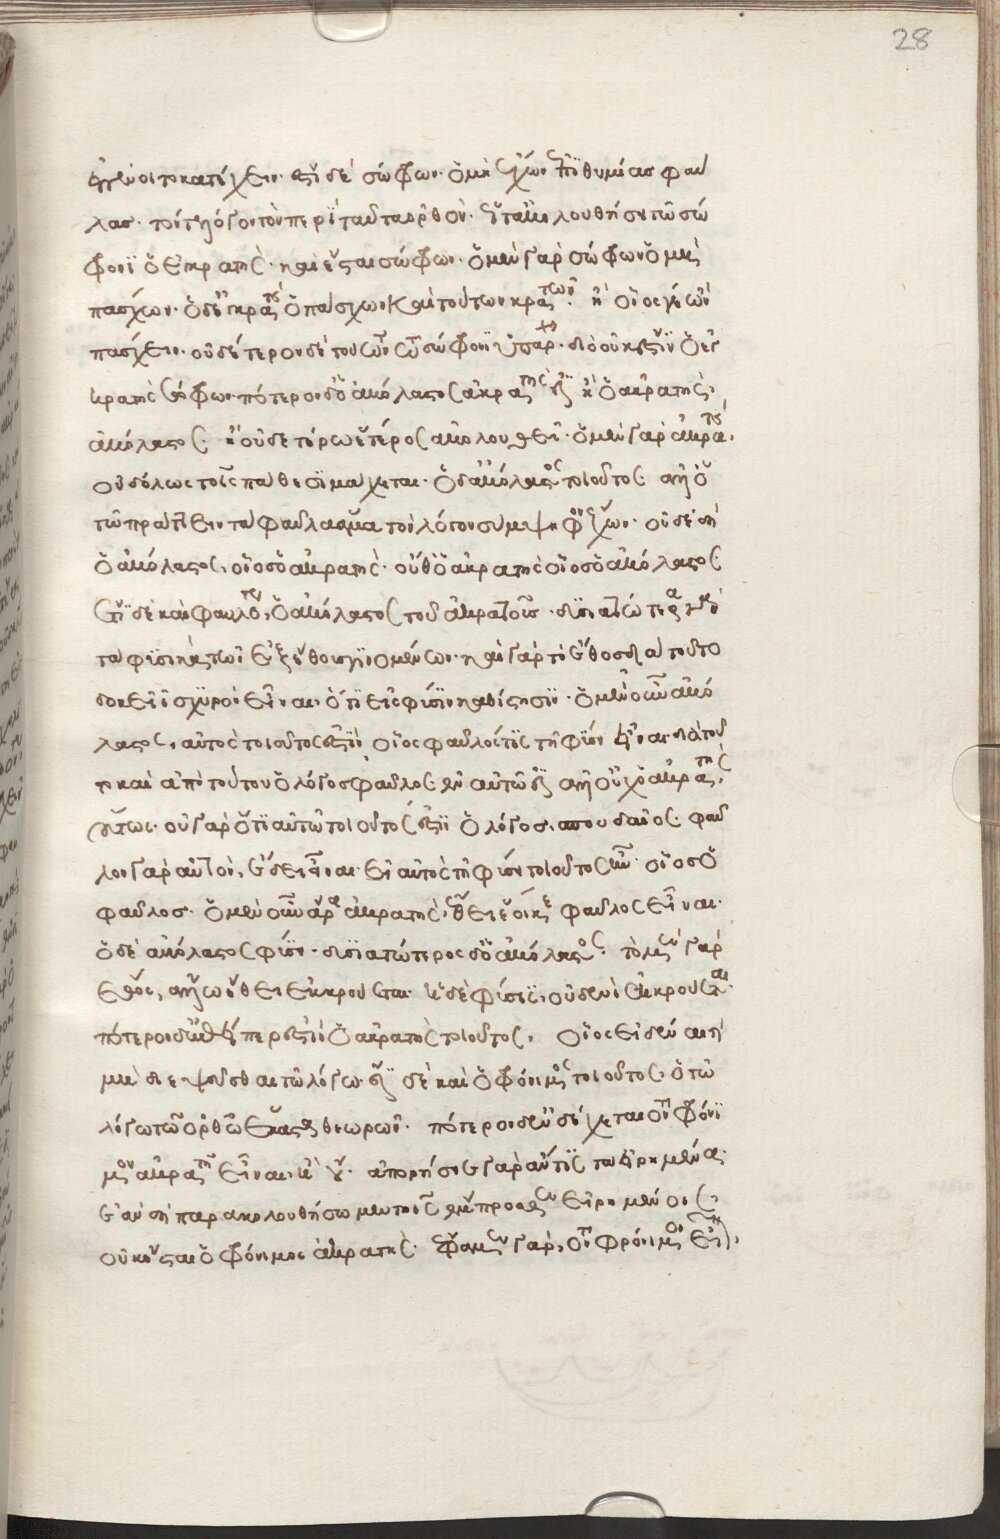 28
ἐγγένοιτο κατέχειν. ἔστι δὲ σώφρων. ὁ μὴ ἔχων ἐπιθυμίας φαύ
λας. τόν τε λόγον τὸν περὶ ταῦτα ὀρθόν. ἀκολουθήσει τῷ σώ
φρονι ὁ ἐγκρατής. καὶ ἔσται σώφρων. ὁ μὲν γὰρ σώφρων ὁ μὴ
πάσχων. ὁ δ' ἐγκρατὴς ὁ πάσχων καὶ τούτων κρατῶν. ἢ οἷος
πάσχειν. οὐδέτερον δὲ τούτων τῷ σώφρονι ὑπάρχει. διὸ οὐκ ἔστιν ὁ ἐγ
κρατὴς σώφρων. πότερον δὲ ὁ ἀκόλαστος ἀκρατής ἐστιν ἢ ὁ ἀκρατής,
ἀκόλαστος. ἢ οὐδετέρως ἕτερος ἀκολουθεῖ. ὁ μὲν γὰρ ἀκρατής,
οὗ ὁ λόγος τοῖς πάθεσι μάχεται. ὁ δ' ἀκόλαστος οὐ τοιοῦτος ἀλλ' ὁ
τῷ πράττειν τὰ φαῦλα ἅμα τὸν λόγον σύμψηφον ἔχων. οὐδὲ δὴ
ὁ ἀκόλαστος, οἷος ὁ ἀκρατής. οὔθ' ὁ ἀκρατὴς οἷος ὁ ἀκόλαστος
ἔτι δὲ καὶ φαυλότερος, ὁ ἀκόλαστος τοῦ ἀκρατοῦς. δυσιατότερα γὰρ
τὰ φύσει τῶν ἐξ ἔθους γινομένων. καὶ γὰρ τὸ ἔθος διὰ τοῦτο
δοκεῖ ἰσχυρὸν εἶναι. ὅτι εἰς φύσιν καθίστησιν. ὁ μὲν οὖν ἀκό
λαστος, αὐτὸς τοιοῦτός ἐστιν οἷος φαῦλός τις τῇ φύσει εἶναι διὰ τοῦ
το καὶ ἀπὸ τούτου ὁ λόγος φαῦλος ἐν αὐτῷ ἐστιν ἀλλ' οὐχ ὁ ἀκρατής,
οὕτως. οὐ γὰρ ὅτι αὐτὸς τοιοῦτός ἐστιν ὁ λόγος, σπουδαῖος. φαῦ
λον γὰρ αὐτὸν, ἔδει εἶναι. εἰ αὐτὸς τῇ φύσει τοιοῦτος ἦν. οἷος ὁ
φαῦλος. ὁ μὲν οὖν ἄρα ἀκρατής, ἔθει ἔοικε φαῦλος εἶναι.
ὁ δὲ ἀκόλαστος φύσει. δυσιατότερος δὲ ὁ ἀκόλαστος. τὸ μὲν γὰρ
ἔθος, ἄλλῳ ἔθει ἐκκρούεται. ἡ δὲ φύσις, οὐδενὶ ἐκκρούεται.
πότερον δ' ἐπείπερ ἐστὶν ὁ ἀκρατὴς τοιοῦτος, οἷος εἰδέναι καὶ
μὴ διεψεῦσθαι τῷ λόγῳ. ἔστι δὲ καὶ ὁ φρόνιμος τοιοῦτος. ὁ τῷ
λόγῳ τῷ ὀρθῷ ἕκαστα θεωρῶν. πότερον ἐνδέχεται τὸν φρόνι
μον ἀκρατῆ εἶναι, ἢ οὔ. ἀπορήσειε γὰρ ἄν τις τὰ εἰρημένα.
ἐὰν δὴ παρακολουθήσωμεν τοῖς ἔμπροσθεν εἰρημένοις,
οὐκ ἔσται ὁ φρόνιμος ἀκρατής. ἔφαμεν γάρ, τὸν φρόνιμον εἶναι,